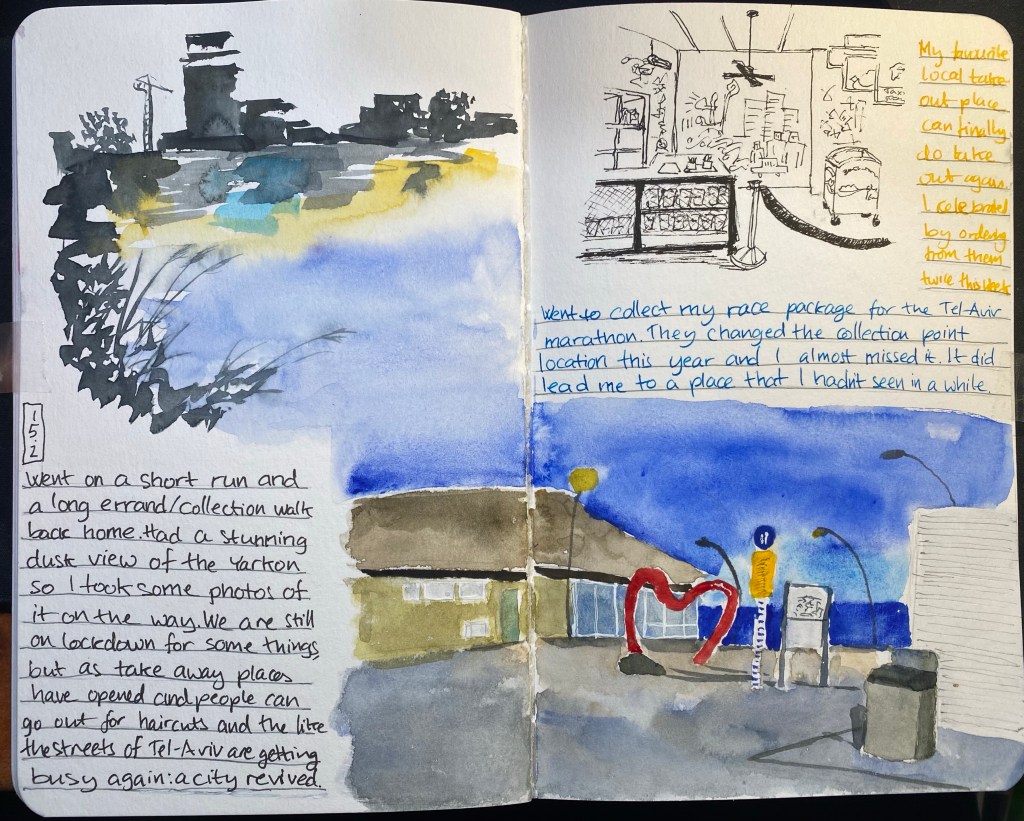 15.2
Went on a short run and
a long errand/collection walk
back home. Had a stunning
dusk view of the Yarkon
so I took some photos of
it on the way. We are still
on lockdown for some things,
but as take away places
have opened and people can
go out for haircuts and the like
the streets of Tel-Aviv are getting
busy again: a city revived.
My favourite
local take
out place
can finally
do take
out again.
I celebrated
by ordering
from them
twice this week
Went to collect my race package for the Tel-Aviv
marathon. They changed the collection point
location this year and I almost missed it. It did
lead me to a place that I hadn't seen in a while.